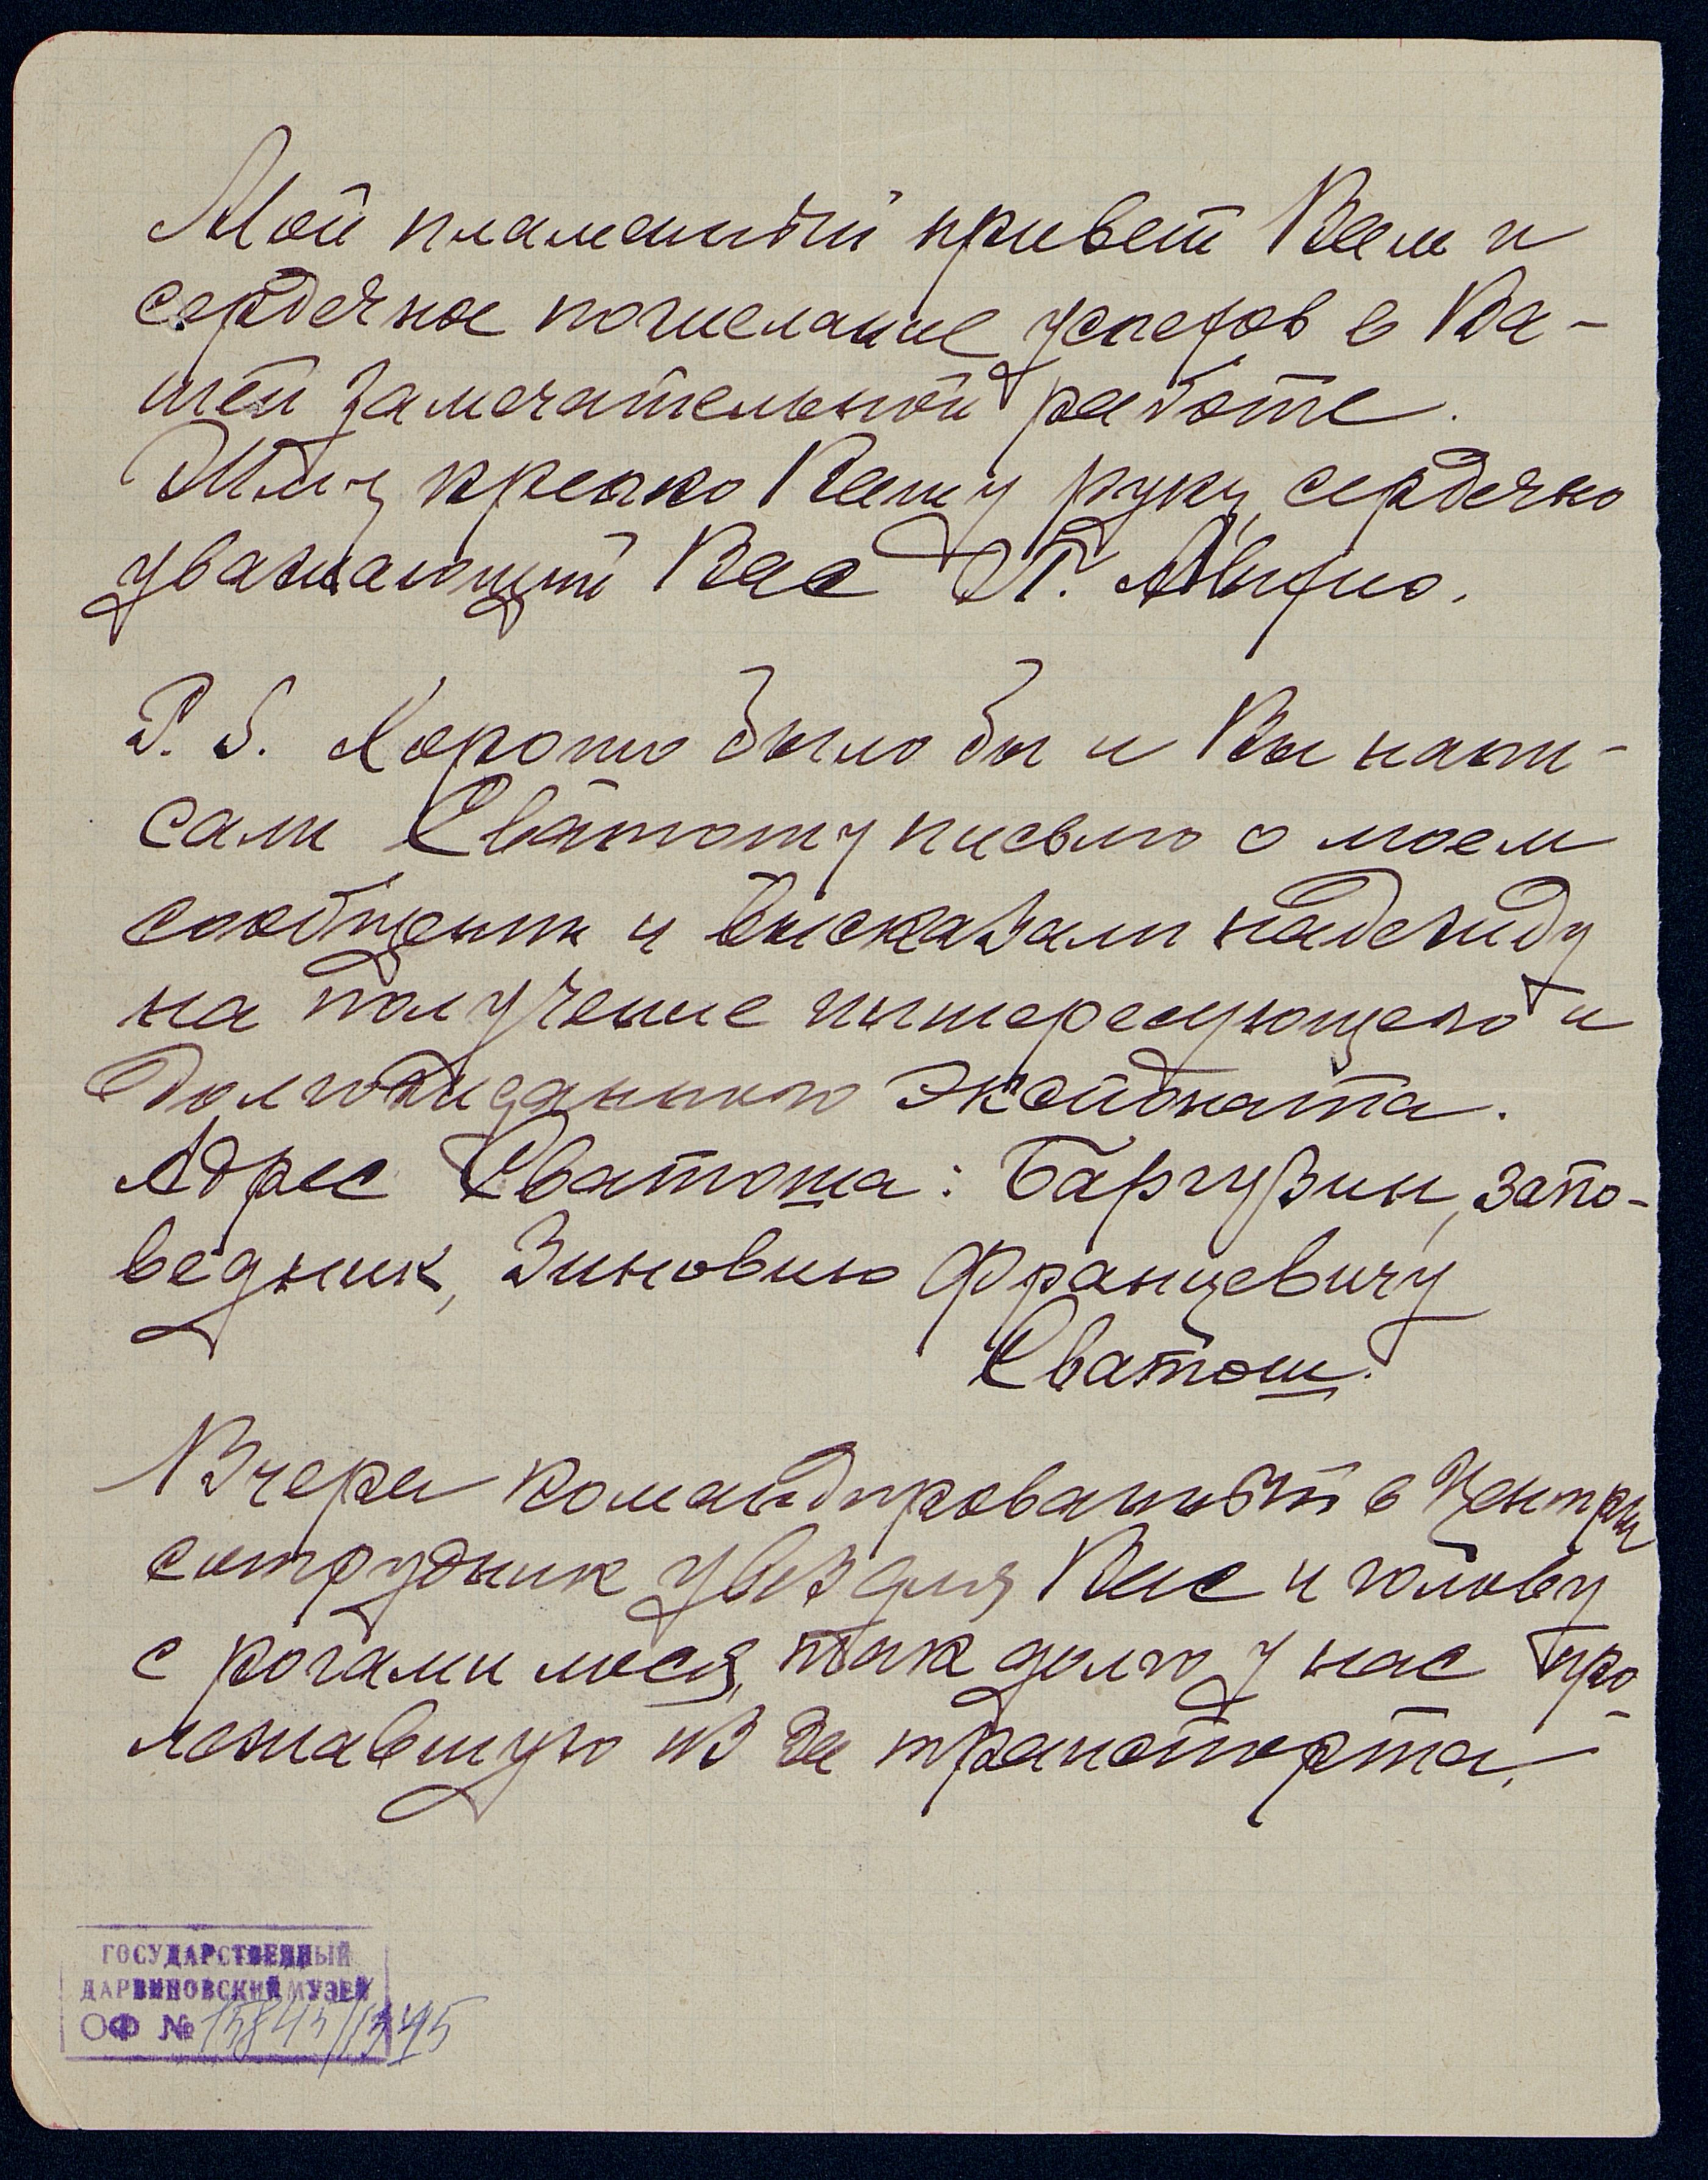 Мой пламенный привет Вам и
сердечное пожелание успехов в Ва-
шей замечательной работе.
Жму крепко Вашу руку, сердечно
уважающий Вас
P. S. Хорошо было бы и Вы напи-
сали Сватошу письмо о моем
сообщении и высказали надежду
на получение интересующего и
долгожиданного экспоната.
Адрес Сватоша: Баргузин, запо-
ведник, Зиновию Францевичу
Сватош.
Вчера командированный в Центр
сотрудник увез для Вас и голову
с рогами лося, так долго у нас про-
лежавшую из за транспорта.
ГОСУДАРСТВЕННЫЙ
ДАРВИНОВСКИЙ МУЗЕЙ
ОФ №